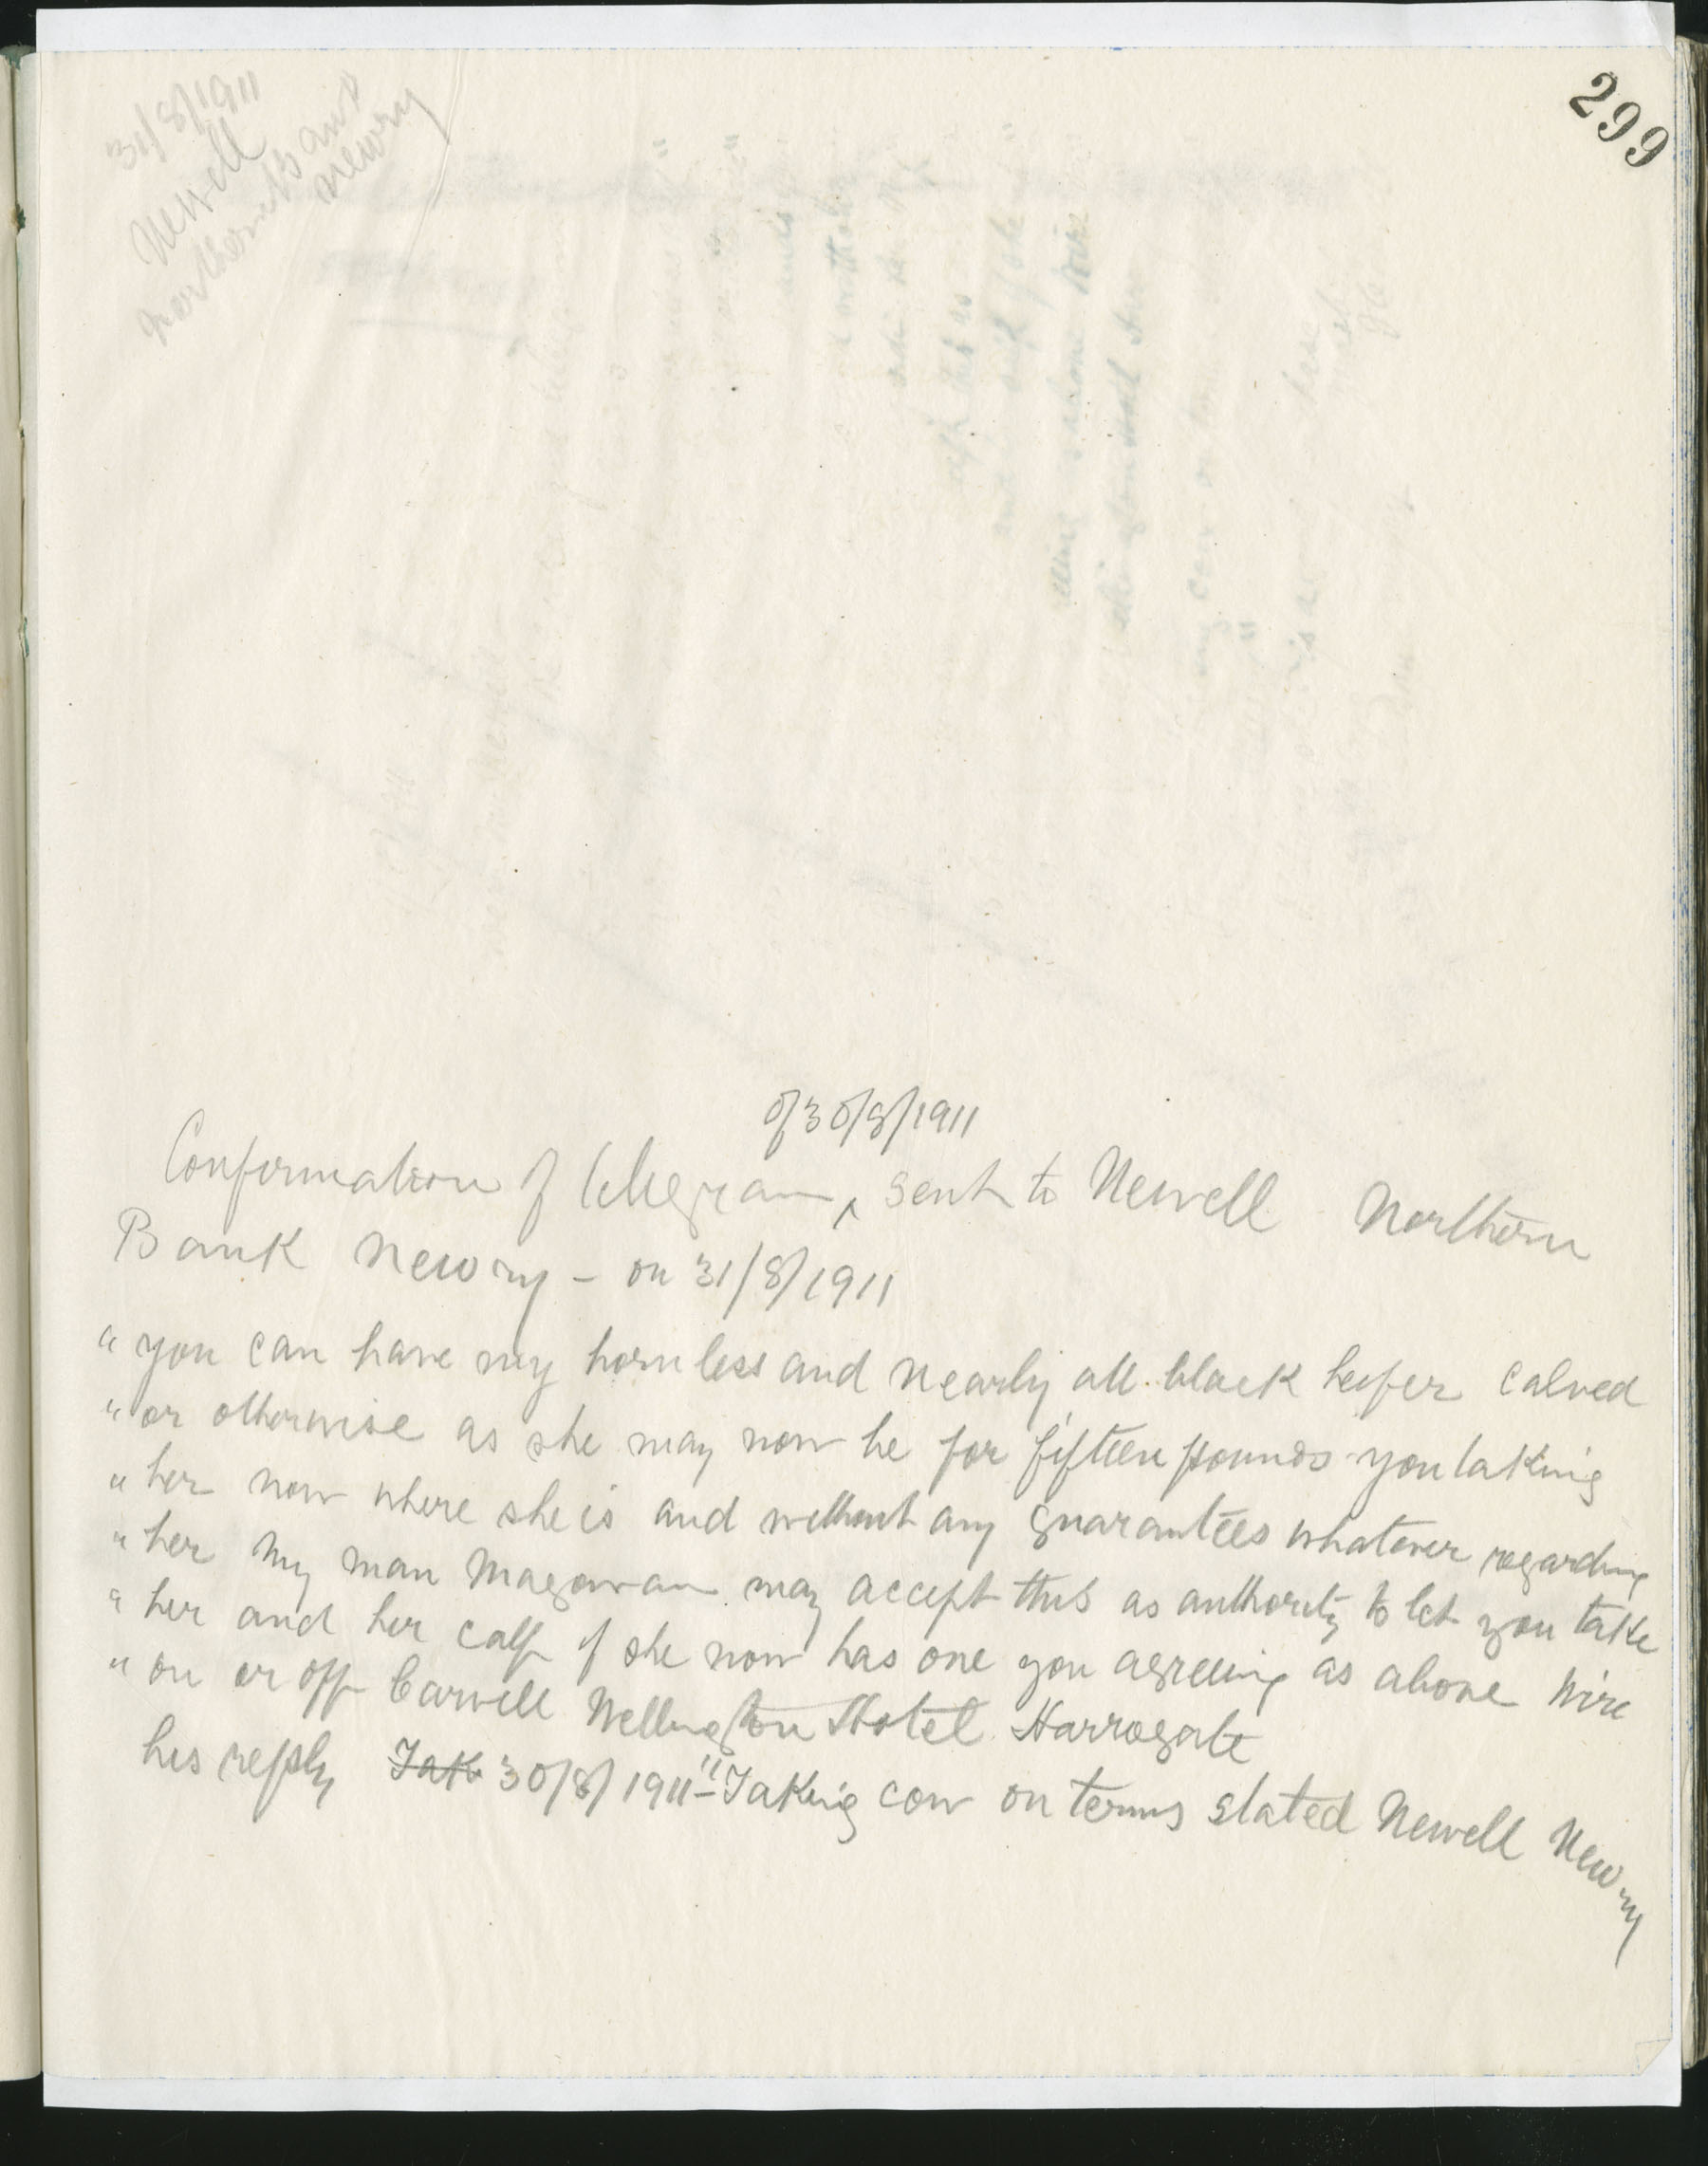 299
31/8/1911
Newell
Northern Bank
Newry
of 30/8/1911
Confirmation of telegram ^ sent to Newell Northern
Bank Newry - on 31/8/1911
"you can have my hornless and nearly all black heifer calved
"or otherwise as she may now be for fifteen pounds you taking
"her now where she is and without any guarantees whatever regarding
"her my man Magowan may accept this as authority to let you take
"her and her calf if she now has one you agreeing as above wire
"on or off Carvill Wellington Hotel Harrogate
his reply Tak 30/8/1911 "Taking cow on terms stated Newell Newry